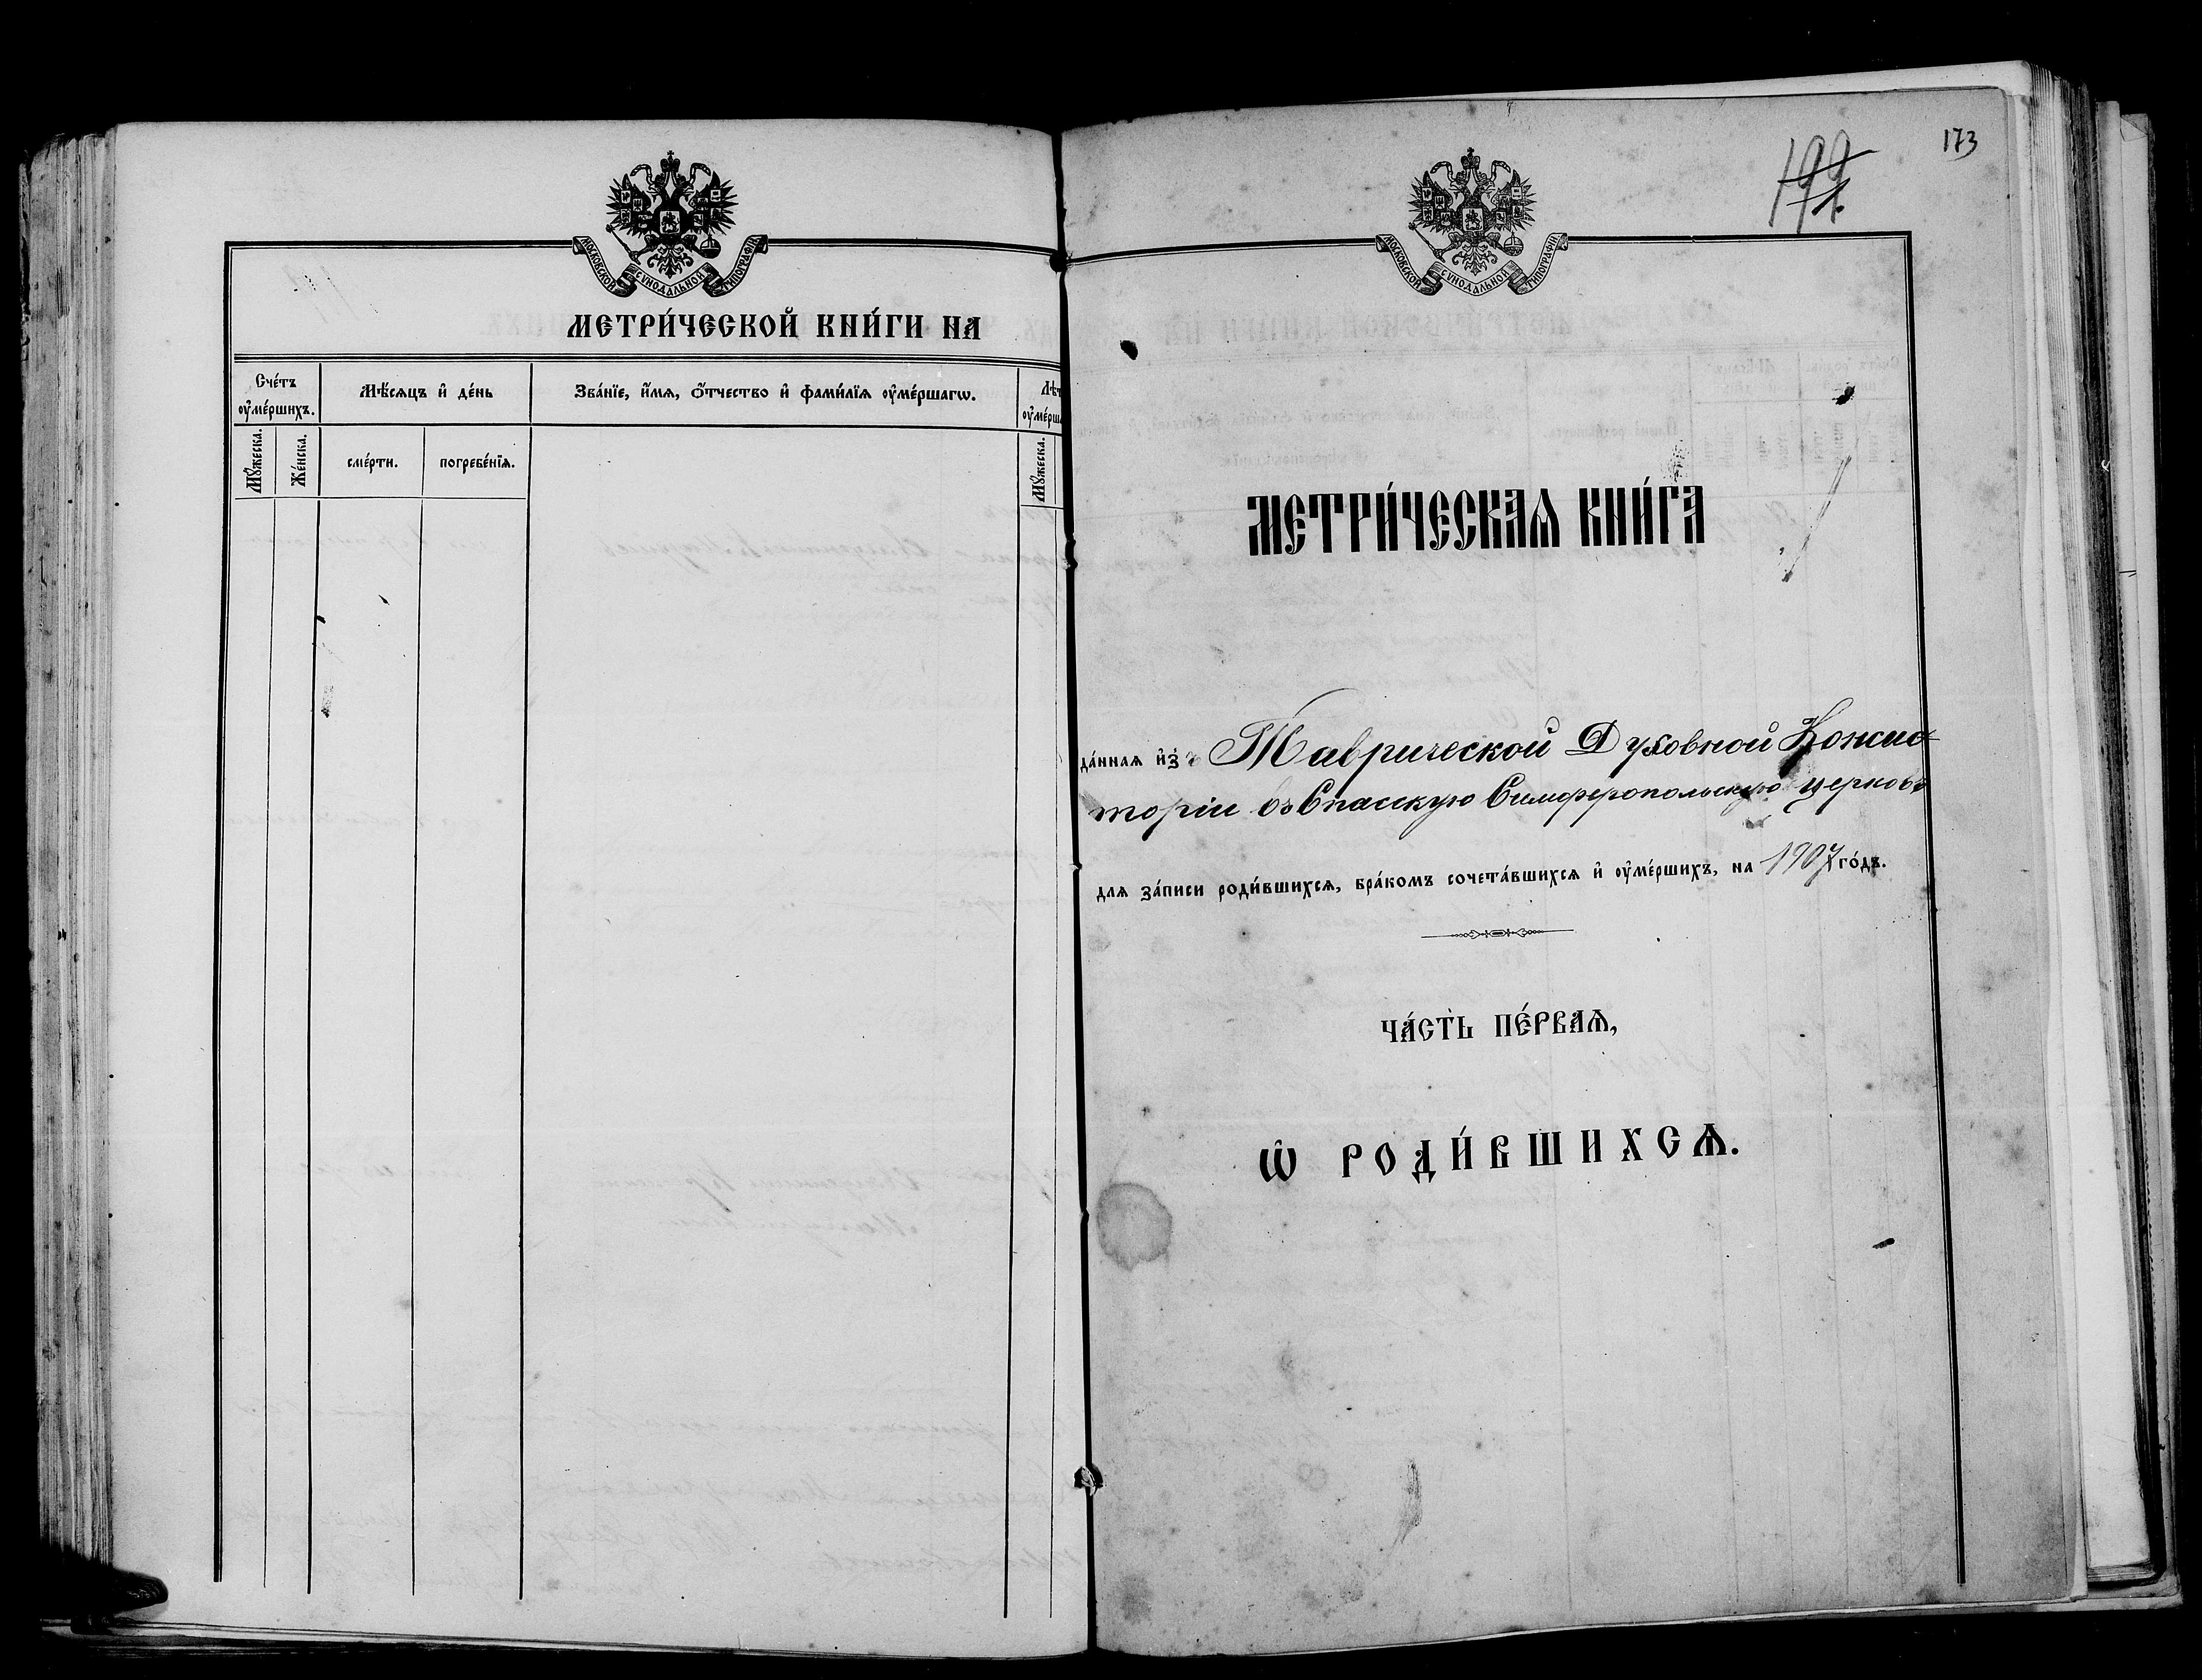 МОСКОВСКОЙ СѴНОДАЛЬНОЙ ТИПОГРАФІИ
МЕТРИ́ЧЕСКОЙ КНИ́ГИ НА
Сче́тъ ᲂу҆ме́ршихъ.
Мѣ́сяцъ и҆ де́нь
Зва́нїе, и҆́мѧ, ѻ҆́тчество и҆ фами́лїѧ ᲂу҆ме́ршагѡ.
Мꙋ́жеска.
Же́нска.
сме́рти.
погребе́нїѧ.
Мꙋ́жеска.
173
МОСКОВСКОЙ СѴНОДАЛЬНОЙ ТИПОГРАФІИ
МЕТРИ́ЧЕСКАѦ КНИ́ГА
да́ннаѧ и҆з̾ Таврической Духовной Консис-
торіи въ Спасскую Симферопольскую церковь
длѧ за́писи роди́вшихсѧ, бра́комъ сочета́вшихсѧ и҆ ᲂу҆ме́ршихъ, на 1907 го́дъ.
ЧА́СТЬ ПЕ́РВАѦ,
Ѡ҆ РОДИ́ВШИХСѦ.